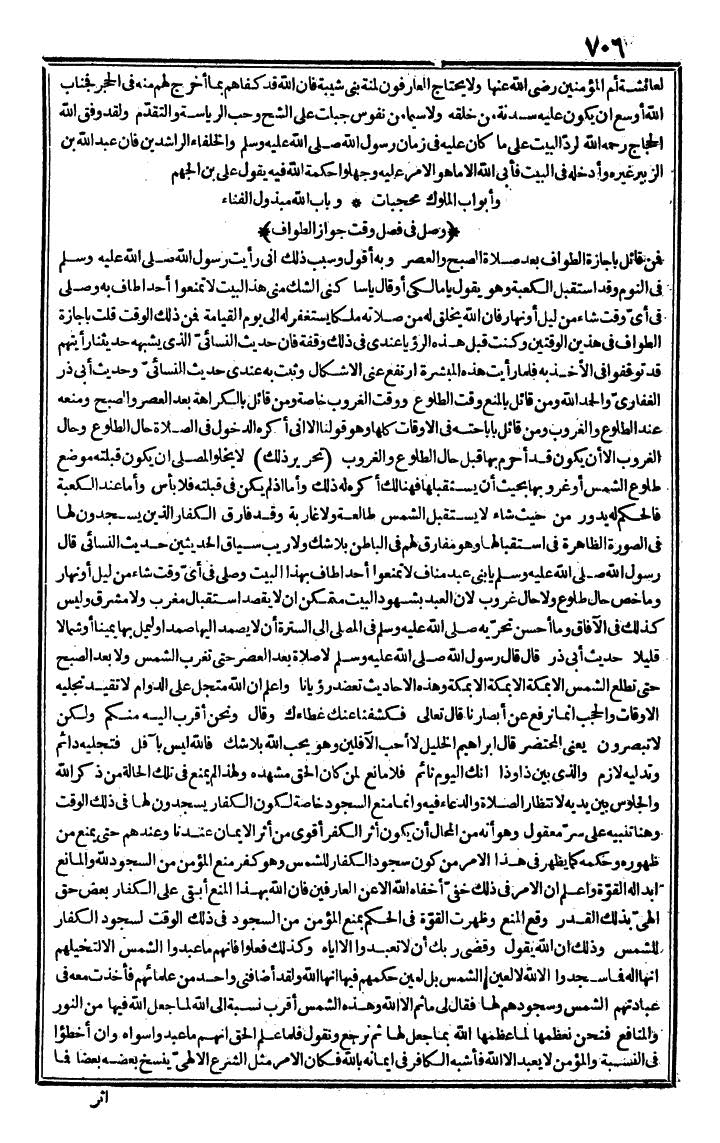 ٧٠٦
لعائشة أم المؤمنين رضى الله عنها ولا يحتاج العارفون لمنة بنى شيبة فان الله قد كفاهم بما أخرج لهم منه فى الحجر فجناب
الله أوسع ان يكون عليه سدنة من خلقه ولا سيما من نفوس جبلت على الشح وحب الرياسة والتقدم ولقد وفق الله
الحجاج رحمه الله لرد البيت على ما كان عليه فى زمان رسول الله صلى الله عليه وسلم والخلفاء الراشدين فان عبد الله بن
الزبير غيره وأدخله فى البيت فأبى الله الا ما هو الامر عليه وجهلوا حكمة الله فيه يقول على بن الجهم
وأبواب الملوك محجبات * وباب الله مبذول الفناء
﴿وصل فى فصل وقت جواز الطواف﴾
فمن قائل باجازة الطواف بعد صلاة الصبح والعصر وبه أقول وسبب ذلك انى رأيت رسول الله صلى الله عليه وسلم
فى النوم وقد استقبل الكعبة وهو يقول يا مالكى أو قال يا ساكنى الشك منى هذا البيت لا تمنعوا أحدا طاف به وصلى
فى أى وقت شاء من ليل أو نهار فان الله يخلق له من صلاته ملكا يستغفر له الى يوم القيامة فمن ذلك الوقت قلت باجازة
الطواف فى هذين الوقتين وكنت قبل هذه الرؤيا عندى فى ذلك وقفة فان حديث النسائى الذى يشبهه حديثنا رأيتهم
قد توقفوا فى الأخذ به فلما رأيت هذه المبشرة ارتفع عنى الاشكال وثبت به عندى حديث النسائى وحديث أبى ذر
الغفارى والحمد لله ومن قائل بالمنع وقت الطلوع ووقت الغروب خاصة ومن قائل بالكراهة بعد العصر والصبح ومنعه
عند الطلوع والغروب ومن قائل باباحته فى الاوقات كلها وهو قولنا الا انى أكره الدخول فى الصلاة حال الطلوع وحال
الغروب الا أن يكون قد أحرم بها قبل حال الطلوع والغروب (تحرير ذلك) لا يخلو المصلى ان يكون قبلته موضع
طلوع الشمس أو غروبها بحيث أن يستقبلها فهنالك أكره له ذلك وأما اذا لم يكن فى قبلته فلا بأس وأما عند الكعبة
فالحكم له يدور من حيث شاء لا يستقبل الشمس طالعة ولا غاربة وقد فارق الكفار الذين يسجدون لها
فى الصورة الظاهرة فى استقبالها وهو مفارق لهم فى الباطن بلا شك ولا ريب سياق الحديثين حديث النسائى قال
رسول الله صلى الله عليه وسلم يا بنى عبد مناف لا تمنعوا أحدا طاف بهذا البيت وصلى فى أى وقت شاء من ليل أو نهار
وما خص حال طلوع ولا حال غروب لان العبد بشهود البيت متمكن ان لا يقصد استقبال مغرب ولا مشرق وليس
كذلك فى الآفاق وما أحسن تحريه صلى الله عليه وسلم فى المصلى الى السترة أن لا يصمد اليها صمدا وليمل بها يمينا أو شمالا
قليلا حديث أبى ذر قال قال رسول الله صلى الله عليه وسلم لا صلاة بعد العصر حتى تغرب الشمس ولا بعد الصبح
حتى تطلع الشمس الا بمكة الا بمكة الا بمكة وهذه الاحاديث تعضد رؤيانا واعلم ان الله متجل على الدوام لا تقيد تجليه
الاوقات والحجب انما ترفع عن أبصارنا قال تعالى فكشفنا عنك غطاءك وقال ونحن أقرب اليه منكم ولكن
لا تبصرون يعنى المحتضر قال ابراهيم الخليل لا أحب الآفلين وهو يحب الله بلا شك فالله ليس بآفل فتجليه دائم
وتدليه لازم والذى بين ذا وذا انك اليوم نائم فلا مانع لمن كان الحق مشهده ولهذا لم يمنع فى تلك الحالة من ذكر الله
والجلوس بين يديه لانتظار الصلاة والدعاء فيه وانما منع السجود خاصة لكون الكفار يسجدون لها فى ذلك الوقت
وهنا تنبيه على سر معقول وهو أنه من المحال أن يكون أثر الكفر أقوى من أثر الايمان عندنا وعندهم حتى يمنع من
ظهوره وحكمه كما يظهر فى هذا الامر من كون سجود الكفار للشمس وهو كفر منع المؤمن من السجود لله والمانع
ابدا له القوة واعلم ان الامر فى ذلك خفى أخفاه الله الا عن العارفين فان الله بهذا المنع أبقى على الكفار بعض حق
الهى بذلك القدر وقع المنع وظهرت القوة فى الحكم بمنع المؤمن من السجود فى ذلك الوقت لسجود الكفار
للشمس وذلك ان الله يقول وقضى ربك أن لا تعبدوا الا اياه وكذلك فعلوا فانهم ما عبدوا الشمس الا لتخيلهم
انها اله فما سجدوا الا لله لا لعين الشمس بل لعين حكمهم فيها انها الله ولقد أضافنى واحد من علمائهم فأخذت معه فى
عبادتهم الشمس وسجودهم لها فقال لى ما ثم الا الله وهذه الشمس أقرب نسبة الى الله لما جعل الله فيها من النور
والمنافع فنحن نعظمها لما عظمها الله بما جعل لها ثم نرجع ونقول فلما علم الحق انهم ما عبدوا سواه وان أخطؤا
فى النسبة والمؤمن لا يعبد الا الله فأشبه الكافر فى ايمانه بالله فكان الامر مثل الشرع الالهى ينسخ بعضه بعضا فما
اثر